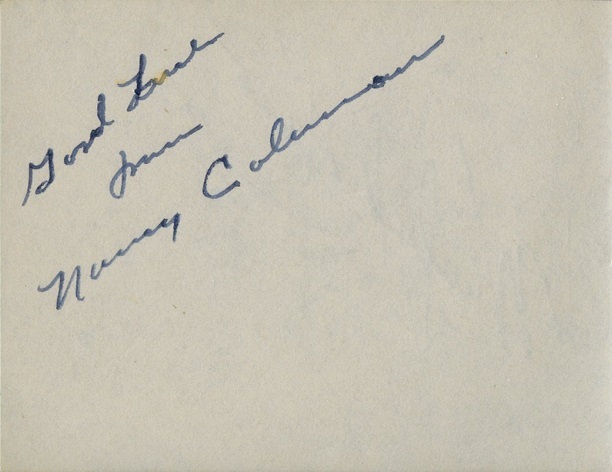 Good Luck
from
Nancy Coleman